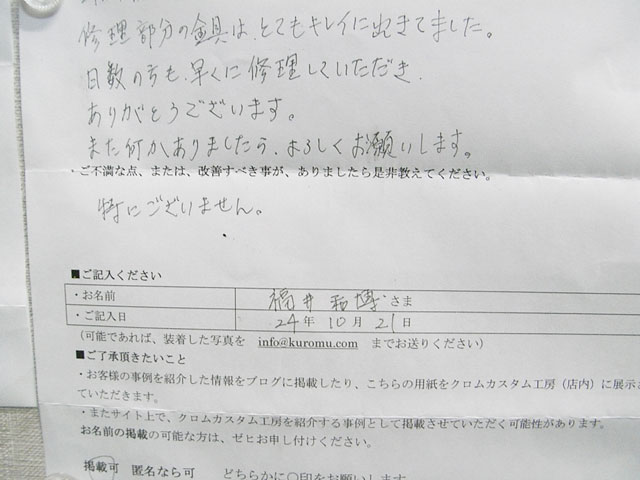 修理部分の金具は、とてもキレイに出きてました。
日数の方も、早くに修理していただき、
ありがとうございます。
また何かありましたら、よろしくお願いします。
・ご不満な点、または、改善すべき事が、ありましたら是非教えてください。
特にございません。
■ご記入ください
・お名前 福井 和博 さま
・ご記入日 24 年 10 月 21 日
(可能であれば、装着した写真を info@kuromu.com までお送りください)
■ご了承頂きたいこと
・お客様の事例を紹介した情報をブログに掲載したり、こちらの用紙をクロムカスタム工房（店内）に展示
ていただきます。
・またサイト上で、クロムカスタム工房を紹介する事例として掲載させていただく可能性があります。
お名前の掲載の可能な方は、ゼヒお申し付けください。
掲載可 匿名なら可 どちらかに〇印をお願いします